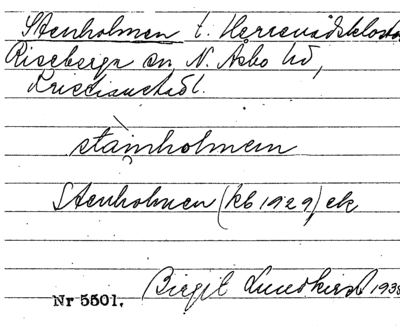 Stenholmen t. Herrevadskloster
Riseberga sn N. Åsbo hd,
Kristianstads l.
stàinholmen
Stenholmen (kb 1929) ek
Birgit Lundkvist 1938
Nr 5501.